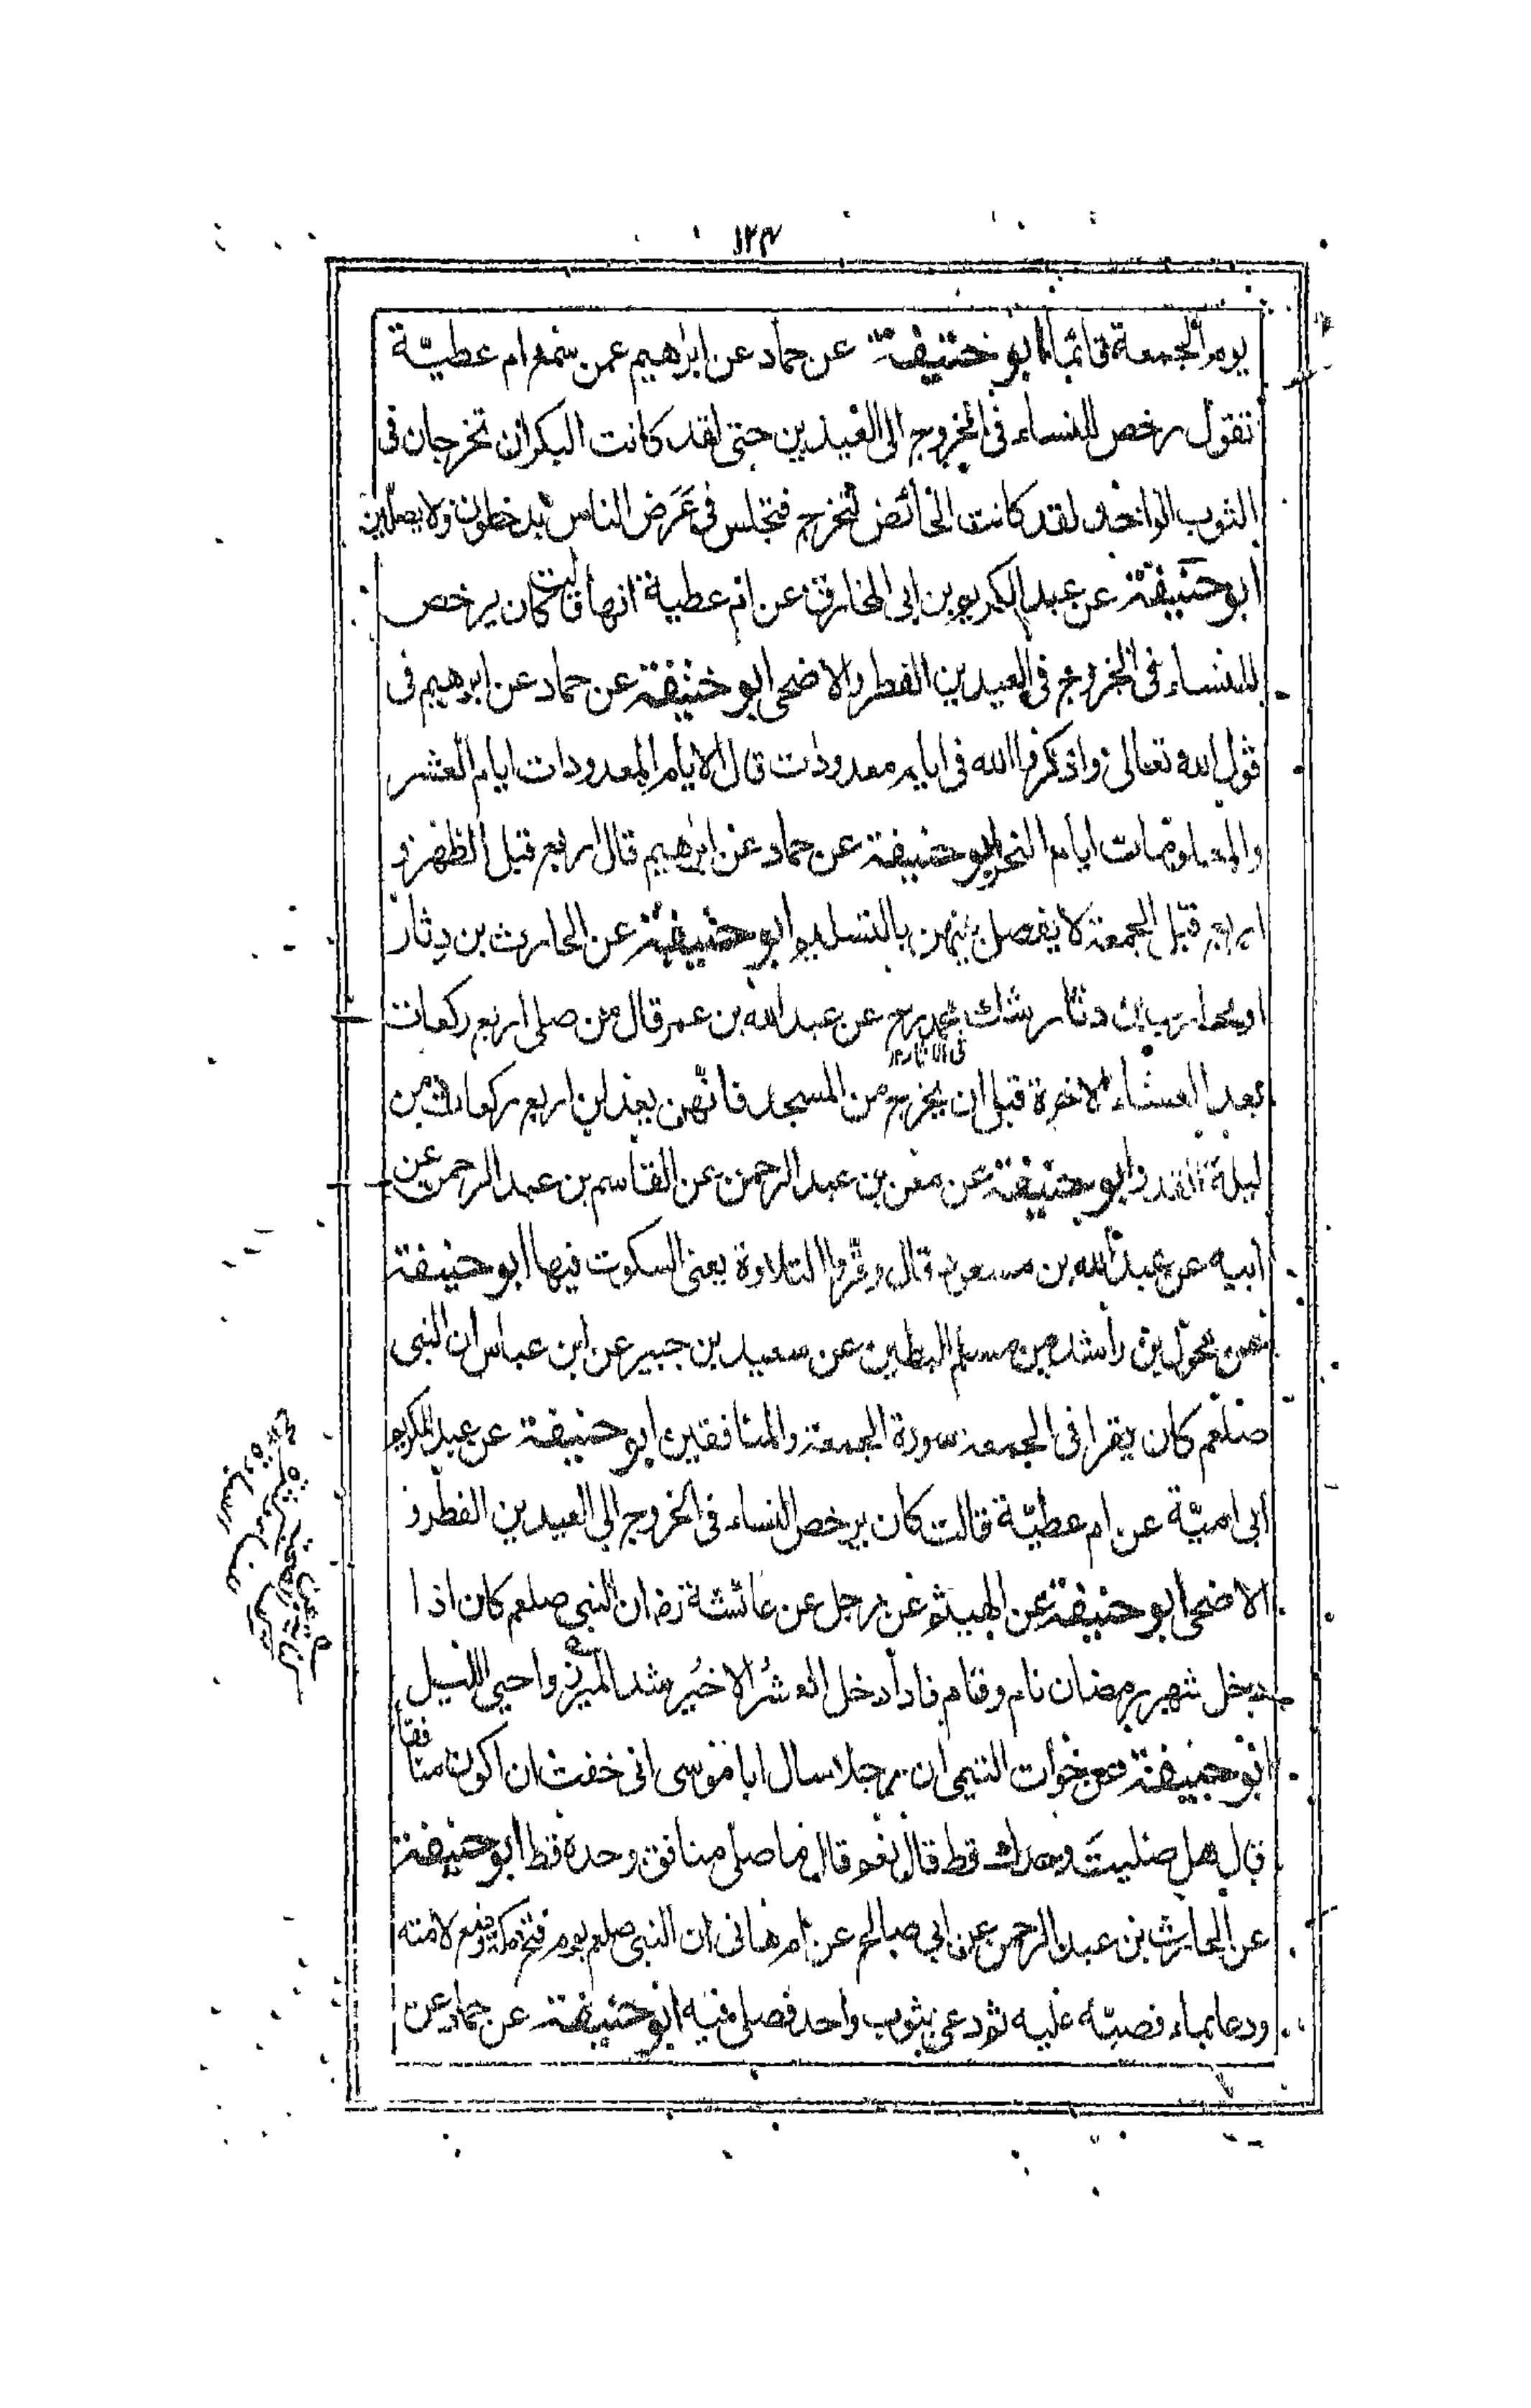 ١٢٣
يوم الجمعة قائما ابو حنيفة عن حماد عن ابرهيم عمن سمع ام عطيّة
تقول رخص للنساء فى الخروج الى العيدين حتى لقد كانت البكران تخرجان فى
الثوب الواحد لقد كانت الحائض لتخرج فتجلس فى عَرَض الناس يدخلون ولا يصلين
ابو حنيفة عن عبد الكريم بن ابى المخارق عن ام عطية انها قالت كان يرخص
للنساء فى الخروج فى العيدين الفطر والاضحى ابو حنيفة عن حماد عن ابرهيم فى
قول الله تعالى واذكروا الله فى ايام معدودات قال الايام المعدودات ايام العشر
والمعلومات ايام النحر ابو حنيفة عن حماد عن ابرهيم قال اربع قبل الظهر و
اربع قبل الجمعة لا يفصل بينهن بالتسليم ابو حنيفة عن الحارث بن دثار
او محارب بن دثار شك محمد رح عن عبد الله بن عمر قال من صلى اربع ركعات
فى الاثار
بعد العشاء الاخرة قبل ان يخرج من المسجد فانّهن يعدلن اربع ركعات من
ليلة القدر ابو حنيفة عن معن بن عبد الرحمن عن القاسم بن عبد الرحمن عن
ابيه عن عبد الله بن مسعود قال وقروا التلاوة يعنى السكوت فيها ابو حنيفة
عن مخول بن راشد عن مسلم البطين عن سعيد بن جبير عن ابن عباس ان النبى
صلعم كان يقرا فى الجمعة سورة الجمعة والمنافقين ابو حنيفة عن عبد الكريم
ابى امية عن ام عطيّة قالت كان يرخص للنساء فى الخروج الى العيدين الفطر و
الاضحى ابو حنيفة عن الهيثم عن رجل عن عائشة رض ان النبى صلعم كان اذا
دخل شهر رمضان نام وقام فاذا دخل العشر الاخير شد الميزر واحيى الليل
ابو حنيفة عن خوات التيمى ان رجلا سال ابا موسى انى خفت ان اكون منافقا
قال هل صليت وحدك قط قال نعم قال ما صلى منافق وحده قط ابو حنيفة
عن الحارث بن عبد الرحمن عن ابى صالح عن ام هانى ان النبى صلعم يوم فتح مكة وضع لامته
ودعا بماء فصبّه عليه ثم دعى بثوب واحد فصلى فيه ابو حنيفة عن حماد عن